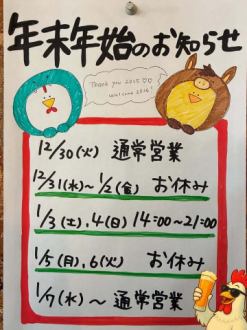 年末年始のお知らせ
Thank you 2025♡♡
welcome 2026!
12/30(火) 通常営業
12/31(水)~1/2(金) お休み
1/3(土),4(日) 14:00~21:00
1/5(月),6(火) お休み
1/7(水)~通常営業